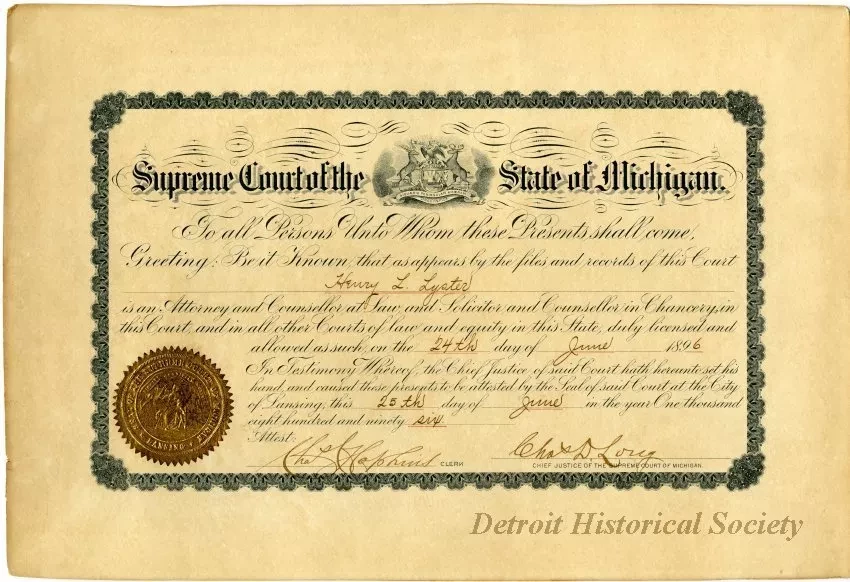 Supreme Court of the State of Michigan.
To all Persons Unto Whom these Presents shall come,
Greeting: Be it Known, that as appears by the files and records of this Court
Henry L. Lyster
is an Attorney and Counsellor at Law and Solicitor and Counsellor in Chancery, in
this Court, and in all other Courts of law and equity in this State, duly licensed and
allowed as such, on the 24th day of June 1896
In Testimony Whereof, the Chief Justice of said Court hath hereunto set his
hand, and caused these presents to be attested by the Seal of said Court at the City
of Lansing, this 25th day of June in the year One thousand
eight hundred and ninety six
Attest:
Chas. Hopkins CLERK
Chas D. Long
CHIEF JUSTICE OF THE SUPREME COURT OF MICHIGAN.
LANSING
Detroit Historical Society